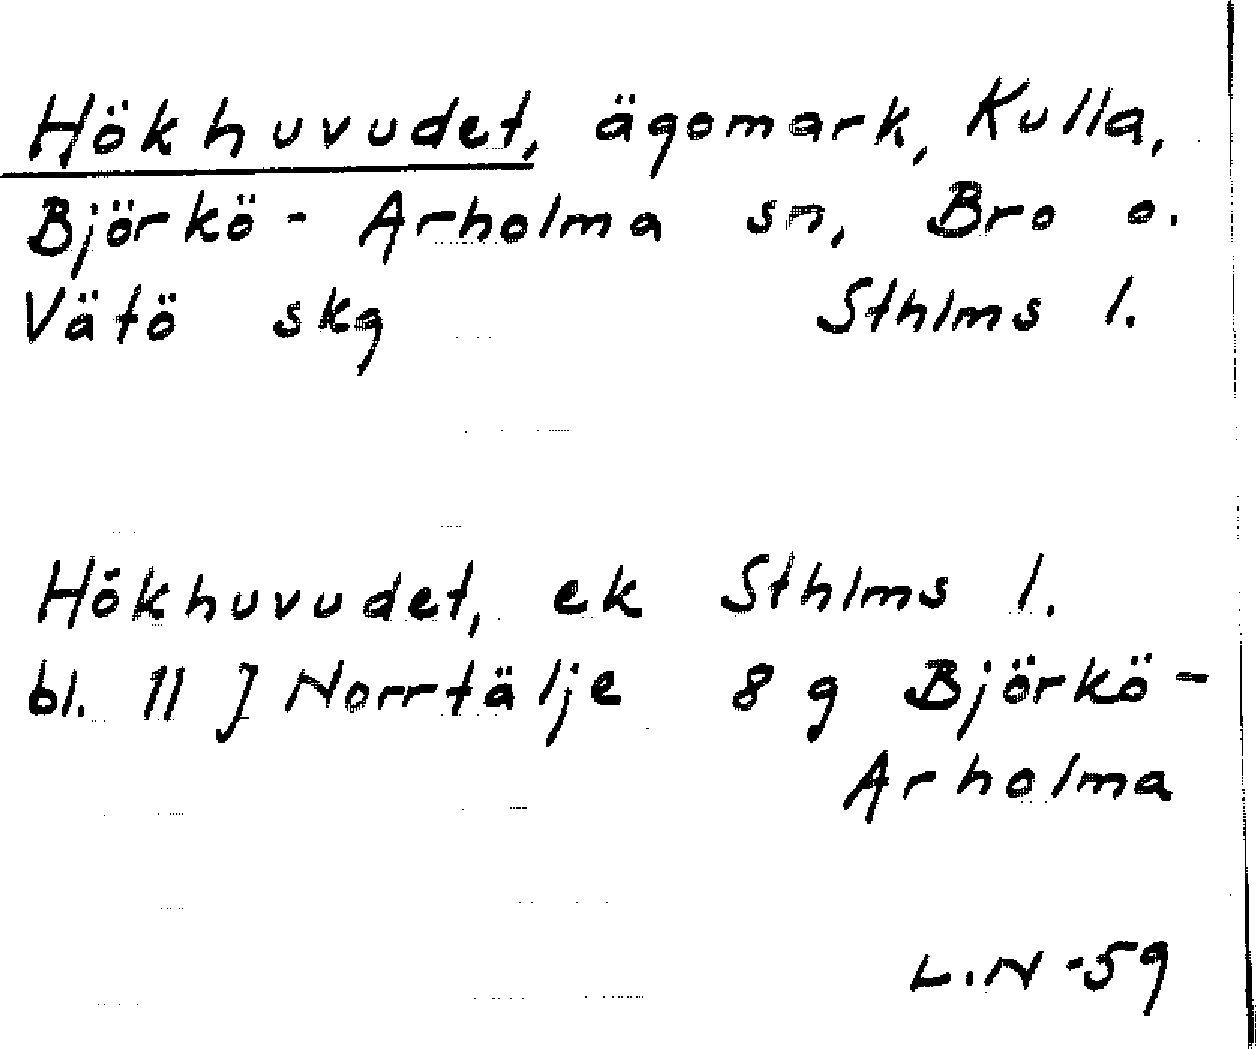 Hökhuvudet, ägomark, Kulla,
Björkö - Arholma sn, Bro o.
Vätö skg Sthlms l.
Hökhuvudet, ek Sthlms l.
bl. 11 J Norrtälje 8 g Björkö -
Arholma
L.N -59